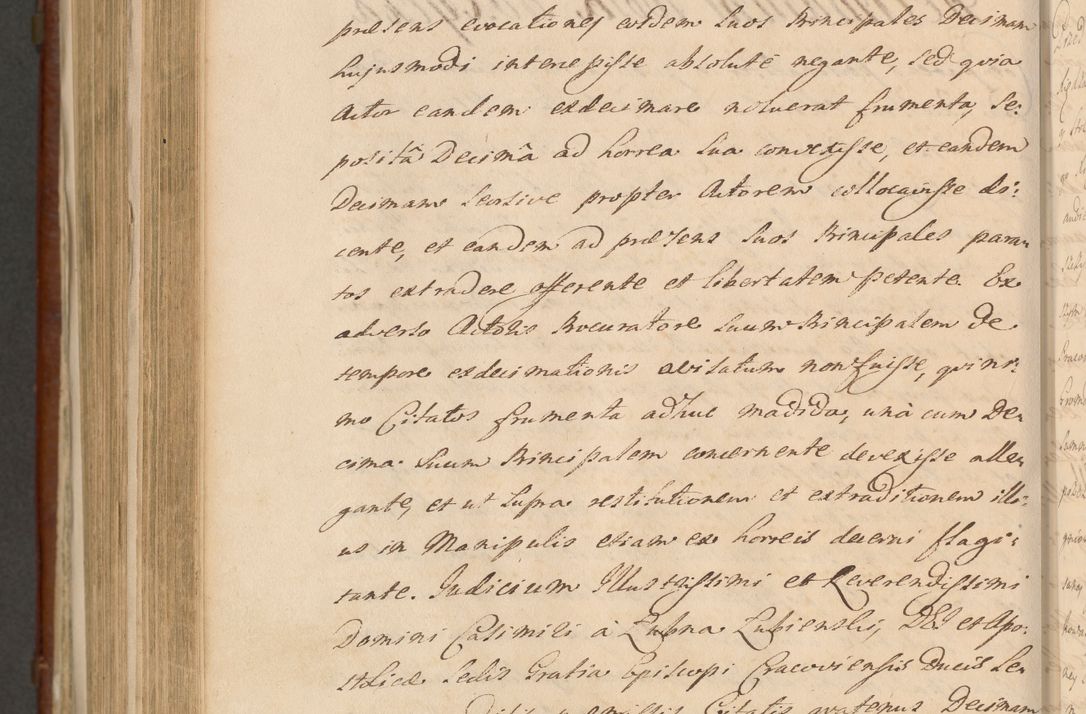 præsens evocationes eosdem suos Principales Decimam
hujusmodi interemisse absoluté negante, sed quia
Actor eandem exdecimare noluerat frumenta, Se:
positâ Decimâ ad horrea sua convexisse, et eandem
Decimam seorsive propter Actorem collocavisse do:
cente, et eandem ad præsens suos Principales para:
tos extradere offerente et libertatem petente. Ex
adverso Actoris Procuratore suum Principalem de
tempore exdecimationis avisatum non fuisse, quini:
mo Citatos frumenta adhuc madida, unà cum De:
cima suum Principalem concernente devexisse alle:
gante, et ut supra restitutionem et extraditionem illi:
us in Manipulis etiam ex horreis decerni flagi:
tante. Judicium Illustrissimi et Reverendissimi
Domini Casimiri à Łubna Łubienski, DEI et Apo:
stolicæ Sedis Gratia Episcopi Cracoviensis Ducis Se:
Citatis quatenus Decimam